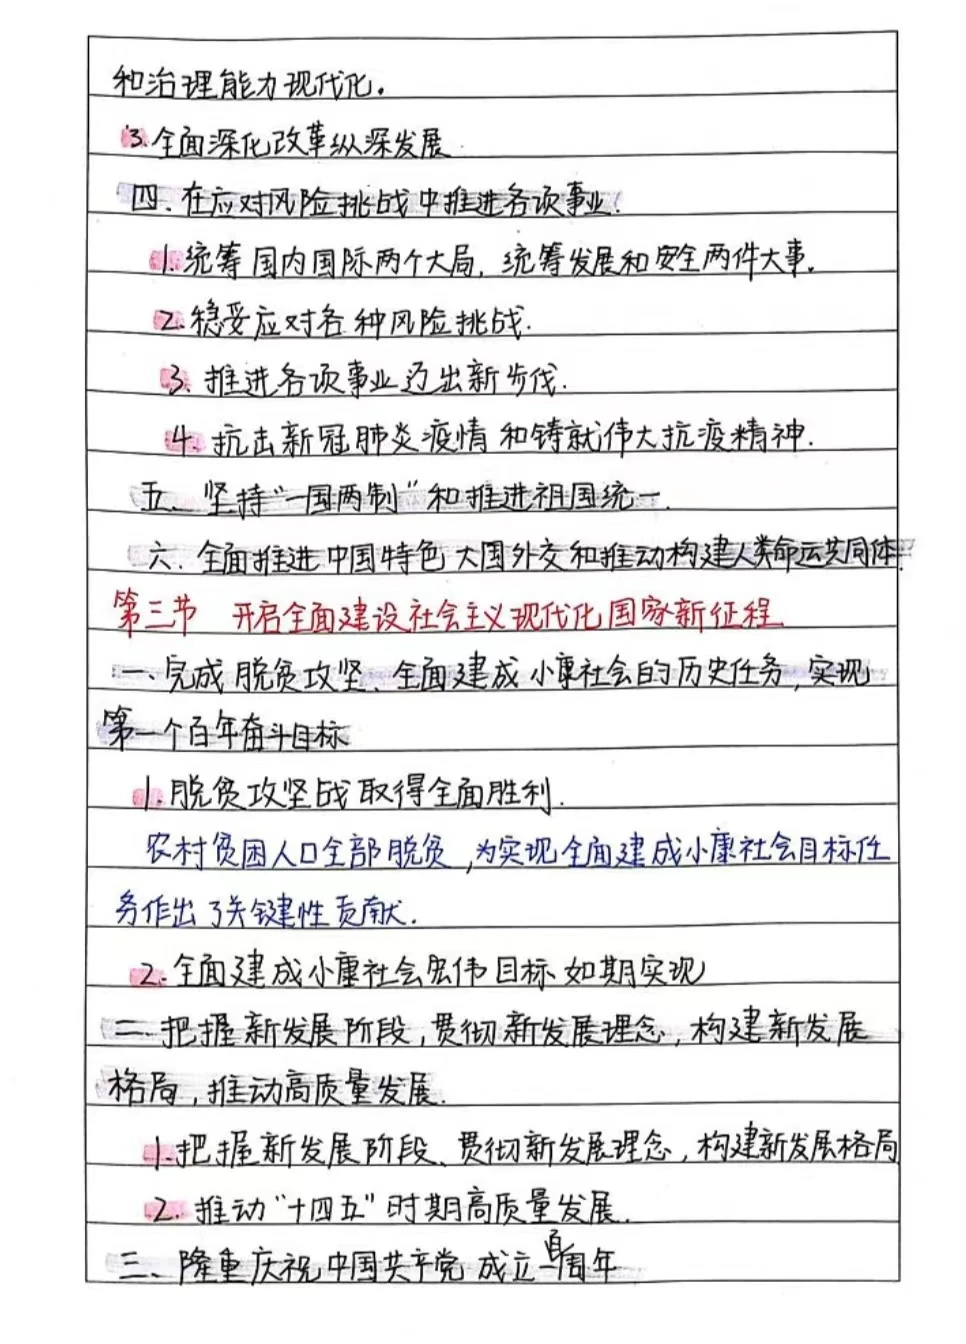 和治理能力现代化。
3.全面深化改革纵深发展
四、在应对风险挑战中推进各项事业.
1.统筹国内国际两个大局，统筹发展和安全两件大事。
2.稳妥应对各种风险挑战.
3.推进各项事业迈出新步伐.
4.抗击新冠肺炎疫情和铸就伟大抗疫精神.
五、坚持“一国两制”和推进祖国统一.
六、全面推进中国特色大国外交和推动构建人类命运共同体.
第三节 开启全面建设社会主义现代化国家新征程
一、完成脱贫攻坚、全面建成小康社会的历史任务，实现
第一个百年奋斗目标
1.脱贫攻坚战取得全面胜利.
农村贫困人口全部脱贫，为实现全面建成小康社会目标任
务作出了关键性贡献.
2.全面建成小康社会宏伟目标如期实现
二、把握新发展阶段，贯彻新发展理念，构建新发展
格局，推动高质量发展.
1.把握新发展阶段、贯彻新发展理念，构建新发展格局
2.推动“十四五”时期高质量发展.
三、隆重庆祝中国共产党成立一百周年